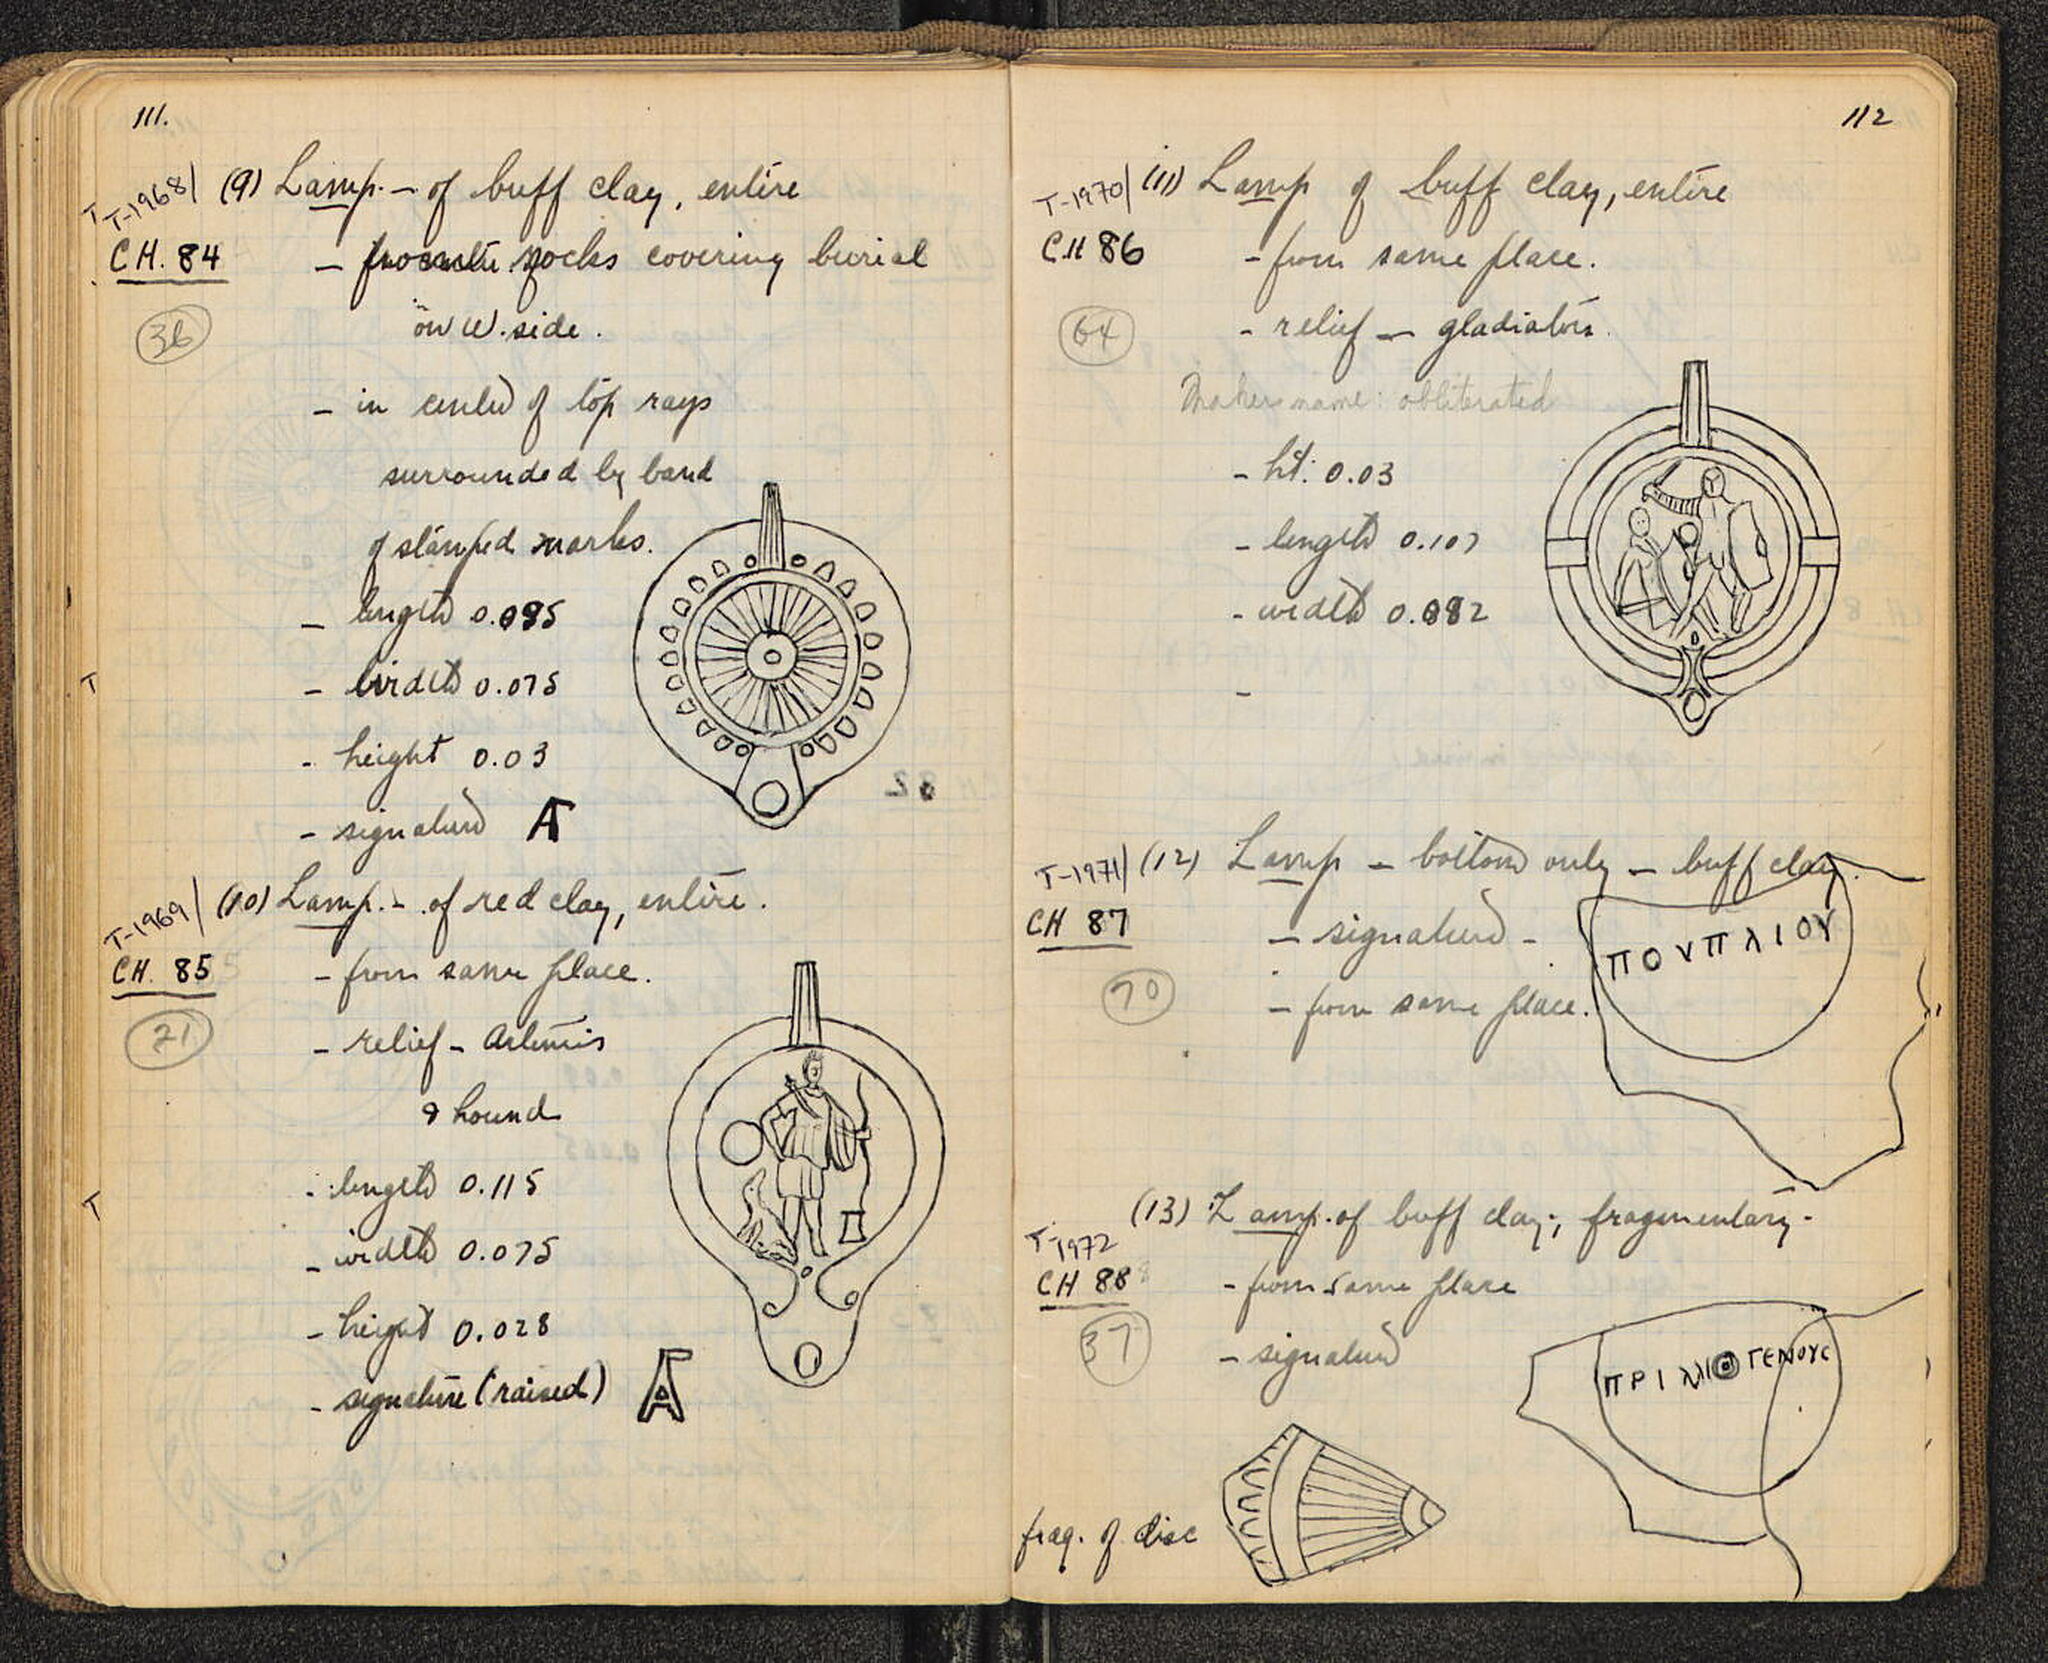 111.
T-1968/ (9) Lamp. - of buff clay, entire
CH. 84 - rocks covering burial
36 on W. side.
- in center of top rays
surrounded by band
of stamped marks.
- length 0.095
- width 0.075
- height 0.03
- signature Α Γ
T-1969/ (10) Lamp. - of red clay, entire.
CH. 85 - from same place.
21 - relief - Artemis
& hound
- length 0.115
- width 0.075
- height 0.028
- signature (raised) Α
112
T-1970/ (11) Lamp of buff clay, entire
CH 86 - from same place.
64 - relief - gladiators.
Makers name: obliterated
- ht: 0.03
- length 0.107
- width 0.082
-
T-1971/ (12) Lamp - bottom only - buff clay.
CH 87 - signature - ΠΟΥΠΛΙΟΥ
70 - from same place.
(13) Lamp. of buff clay; fragmentary.
T-1972
CH 88 - from same place
37 - signature ΠΡΙΜΟΓΕΝΟΥϹ
frag. of disc